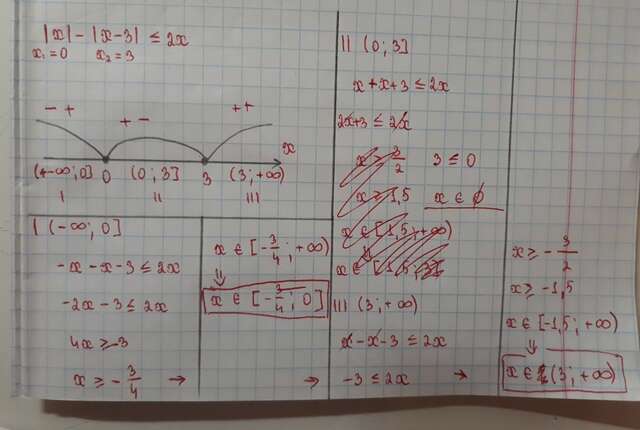 |x| - |x-3| ≤ 2x
x₁=0 x₂=3
- +
+ -
++
x
(-∞;0] 0 (0;3] 3 (3;+∞)
I II III
I (-∞;0]
-x-x-3≤2x
-2x-3≤2x
4x≥-3
x ≥ -3/4 →
x ∈ [-3/4;+∞)
⇓
x ∈ [-3/4;0]
→
II (0;3]
x+x+3≤2x
2x+3≤2x
x ≥ 3/2 3≤0
x≥1,5 x ∈ ∅
x ∈ [1,5;+∞)
⇓
x ∈ [1,5;3]
III (3;+∞)
x-x-3≤2x
-3≤2x →
x ≥ -3/2
x≥-1,5
x ∈ [-1,5;+∞)
↓
x ∈ (3;+∞)